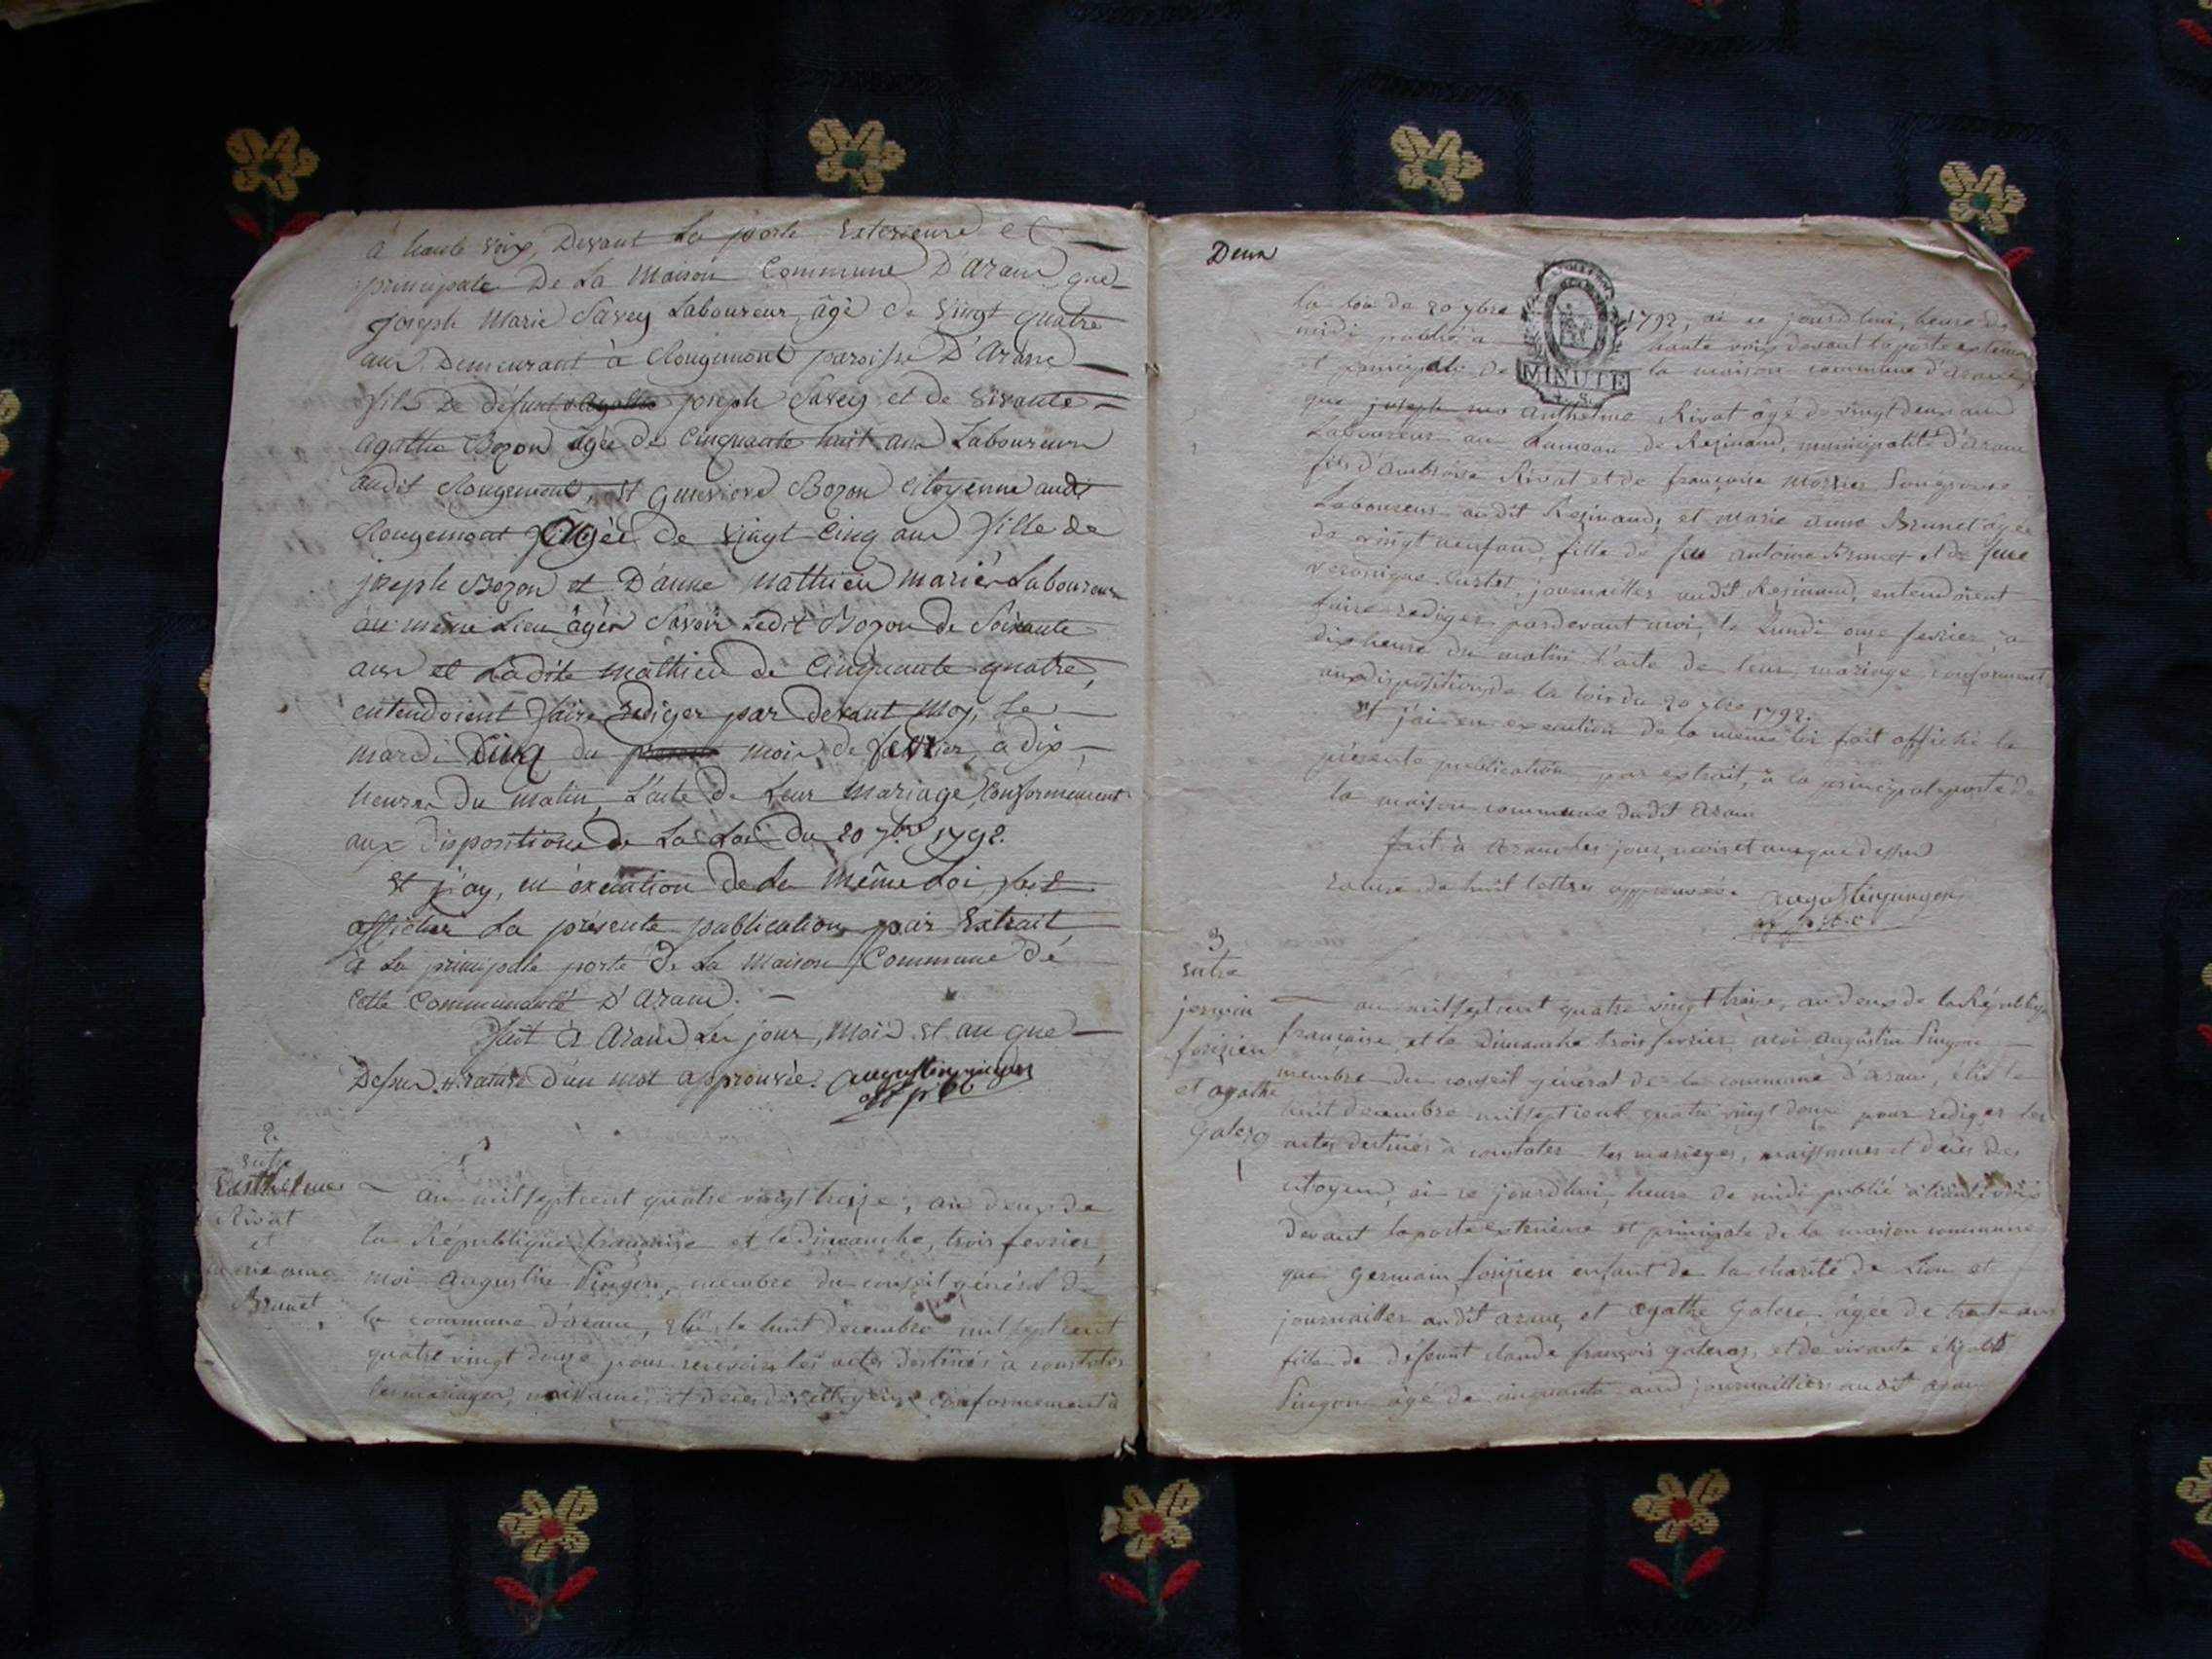 à haute voix, Devant La porte Exterieure et
principale De La Maison Commune D'Aranc que
Joseph Marie Savey Laboureur, âgé de vingt quatre
ans Demeurant à Rougemont paroisse D'Aranc
fils De défunt joseph Savey et de vivante
agathe Bozon âgée de Cinquante huit ans Laboureurs
audit Rougemont, et Genevieve Bozon Citoyenne audit
Rougemont âgée de vingt Cinq ans fille de
joseph Bozon et D'anne Mathieu mariés Laboureurs
au même Lieu âgés Savoir Ledit Bozon de Soixante
ans et Ladite Mathieu de Cinquante quatre,
entendoient faire rediger par devant Moy, Le
mardi Cinq du mois de fevrier, à dix
heures Du Matin, L'acte De Leur Mariage, Conformement
aux Dispositions de La Loi Du 20 7bre 1792.
Et j'ay, en éxécution De La Même Loi, fait
afficher La présente publication par Extrait,
à La principale porte De La Maison Commune de
Cette Communauté D'Aranc.
Fait à Aranc Les jour, Mois et an que
Dessus. rature d'un mot approuvée. augustin pingon
2e
Entre
Anthelme
Rivat
et
marie anne
Brunet
an mil sept cent quatre vingt treize, an deux de
la République française et le dimanche, trois fevrier,
moi Augustin Pingon, membre du conseil général de
la commune d'aranc, élû le huit decembre mil sept cent
quatre vingt douze pour recevoir les actes destinés à constater
les mariages, naissances et décès des citoyens conformement à
Deux
la loi du 20 7bre 1792, ai ce jourd'hui, heure de
midi publié à haute voix devant la porte exterieure
MINUTE
et principale de la maison commune d'aranc,
que Anthelme Rivat âgé de vingt deux ans
Laboureur au hameau de Resinand, municipalité d'aranc
fils d'ambroise Rivat et de françoise
Laboureurs audit Resinand, et marie anne Brunet âgée
de vingt neuf ans, fille de feu antoine Brunet et de feue
veronique, journallier audit Resinand, entendoient
faire rediger pardevant moi, le Lundi onze fevrier, à
dix heures du matin l'acte de leur mariage conformement
aux dispositions de la loi du 20 7bre 1792.
Et j'ai en execution de la même loi fait affiché la
présente publication par extrait, à la principale porte de
la maison commune dudit Aranc
fait à Aranc les jour, mois et an que dessus
rature de huit lettres approuvée. augustin pingon
3
Entre
jermain
forizien
et agathe
Galera
an mil sept cent quatre vingt treize, an deux de la République
française, et le dimanche trois fevrier, moi augustin Pingon
membre du conseil général de la commune d'aranc, élû le
huit decembre mil sept cent quatre vingt douze pour rediger les
actes destinés à constater les mariages, naissances et décès des
citoyens, ai ce jourd'hui, heure de midi publié à haute voix
devant la porte exterieure et principale de la maison commune
que germain forizien enfant de la charité de Lion et
journallier audit aranc, et agathe Galera, âgée de trente ans
fille de défunt claude françois galera, et de vivante élizabeth
Pingon âgé de cinquante ans journalliers audit aranc